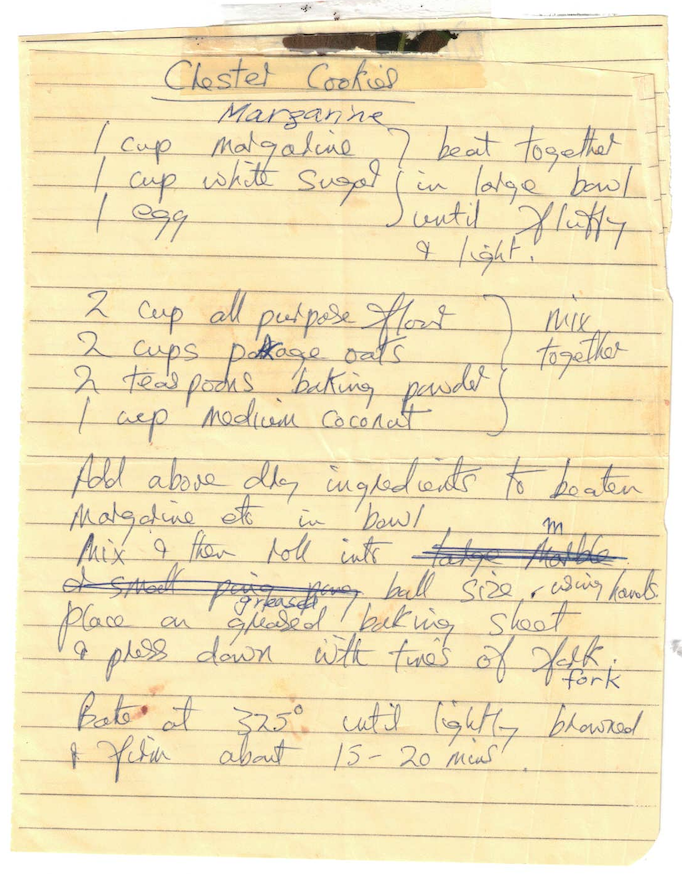 Chester Cookies
Margarine
1 cup margarine } beat together
1 cup white sugar in large bowl
1 egg until fluffy
& light.
2 cup all purpose flour } mix
2 cups porrage oats together
2 teaspoons baking powder
1 cup medium coconut
Add above dry ingredients to beaten
margarine etc in bowl
m
Mix & then roll into large Marble
or small ping pong ball size, using hands
greased
place on greased baking sheet
& press down with tines of fork.
fork
Bake at 325° until lightly browned
& firm about 15-20 mins.